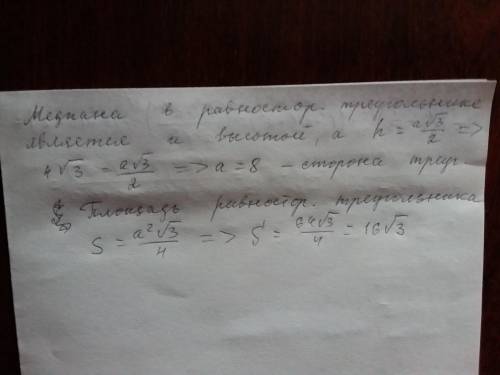 Медиана в равностор. треугольнике
является и высотой, а h = a√3/2 =>
4√3 = a√3/2 => a = 8 - сторона треуг.
Площадь равностор. треугольника
S = a²√3/4 => S = 64√3/4 = 16√3